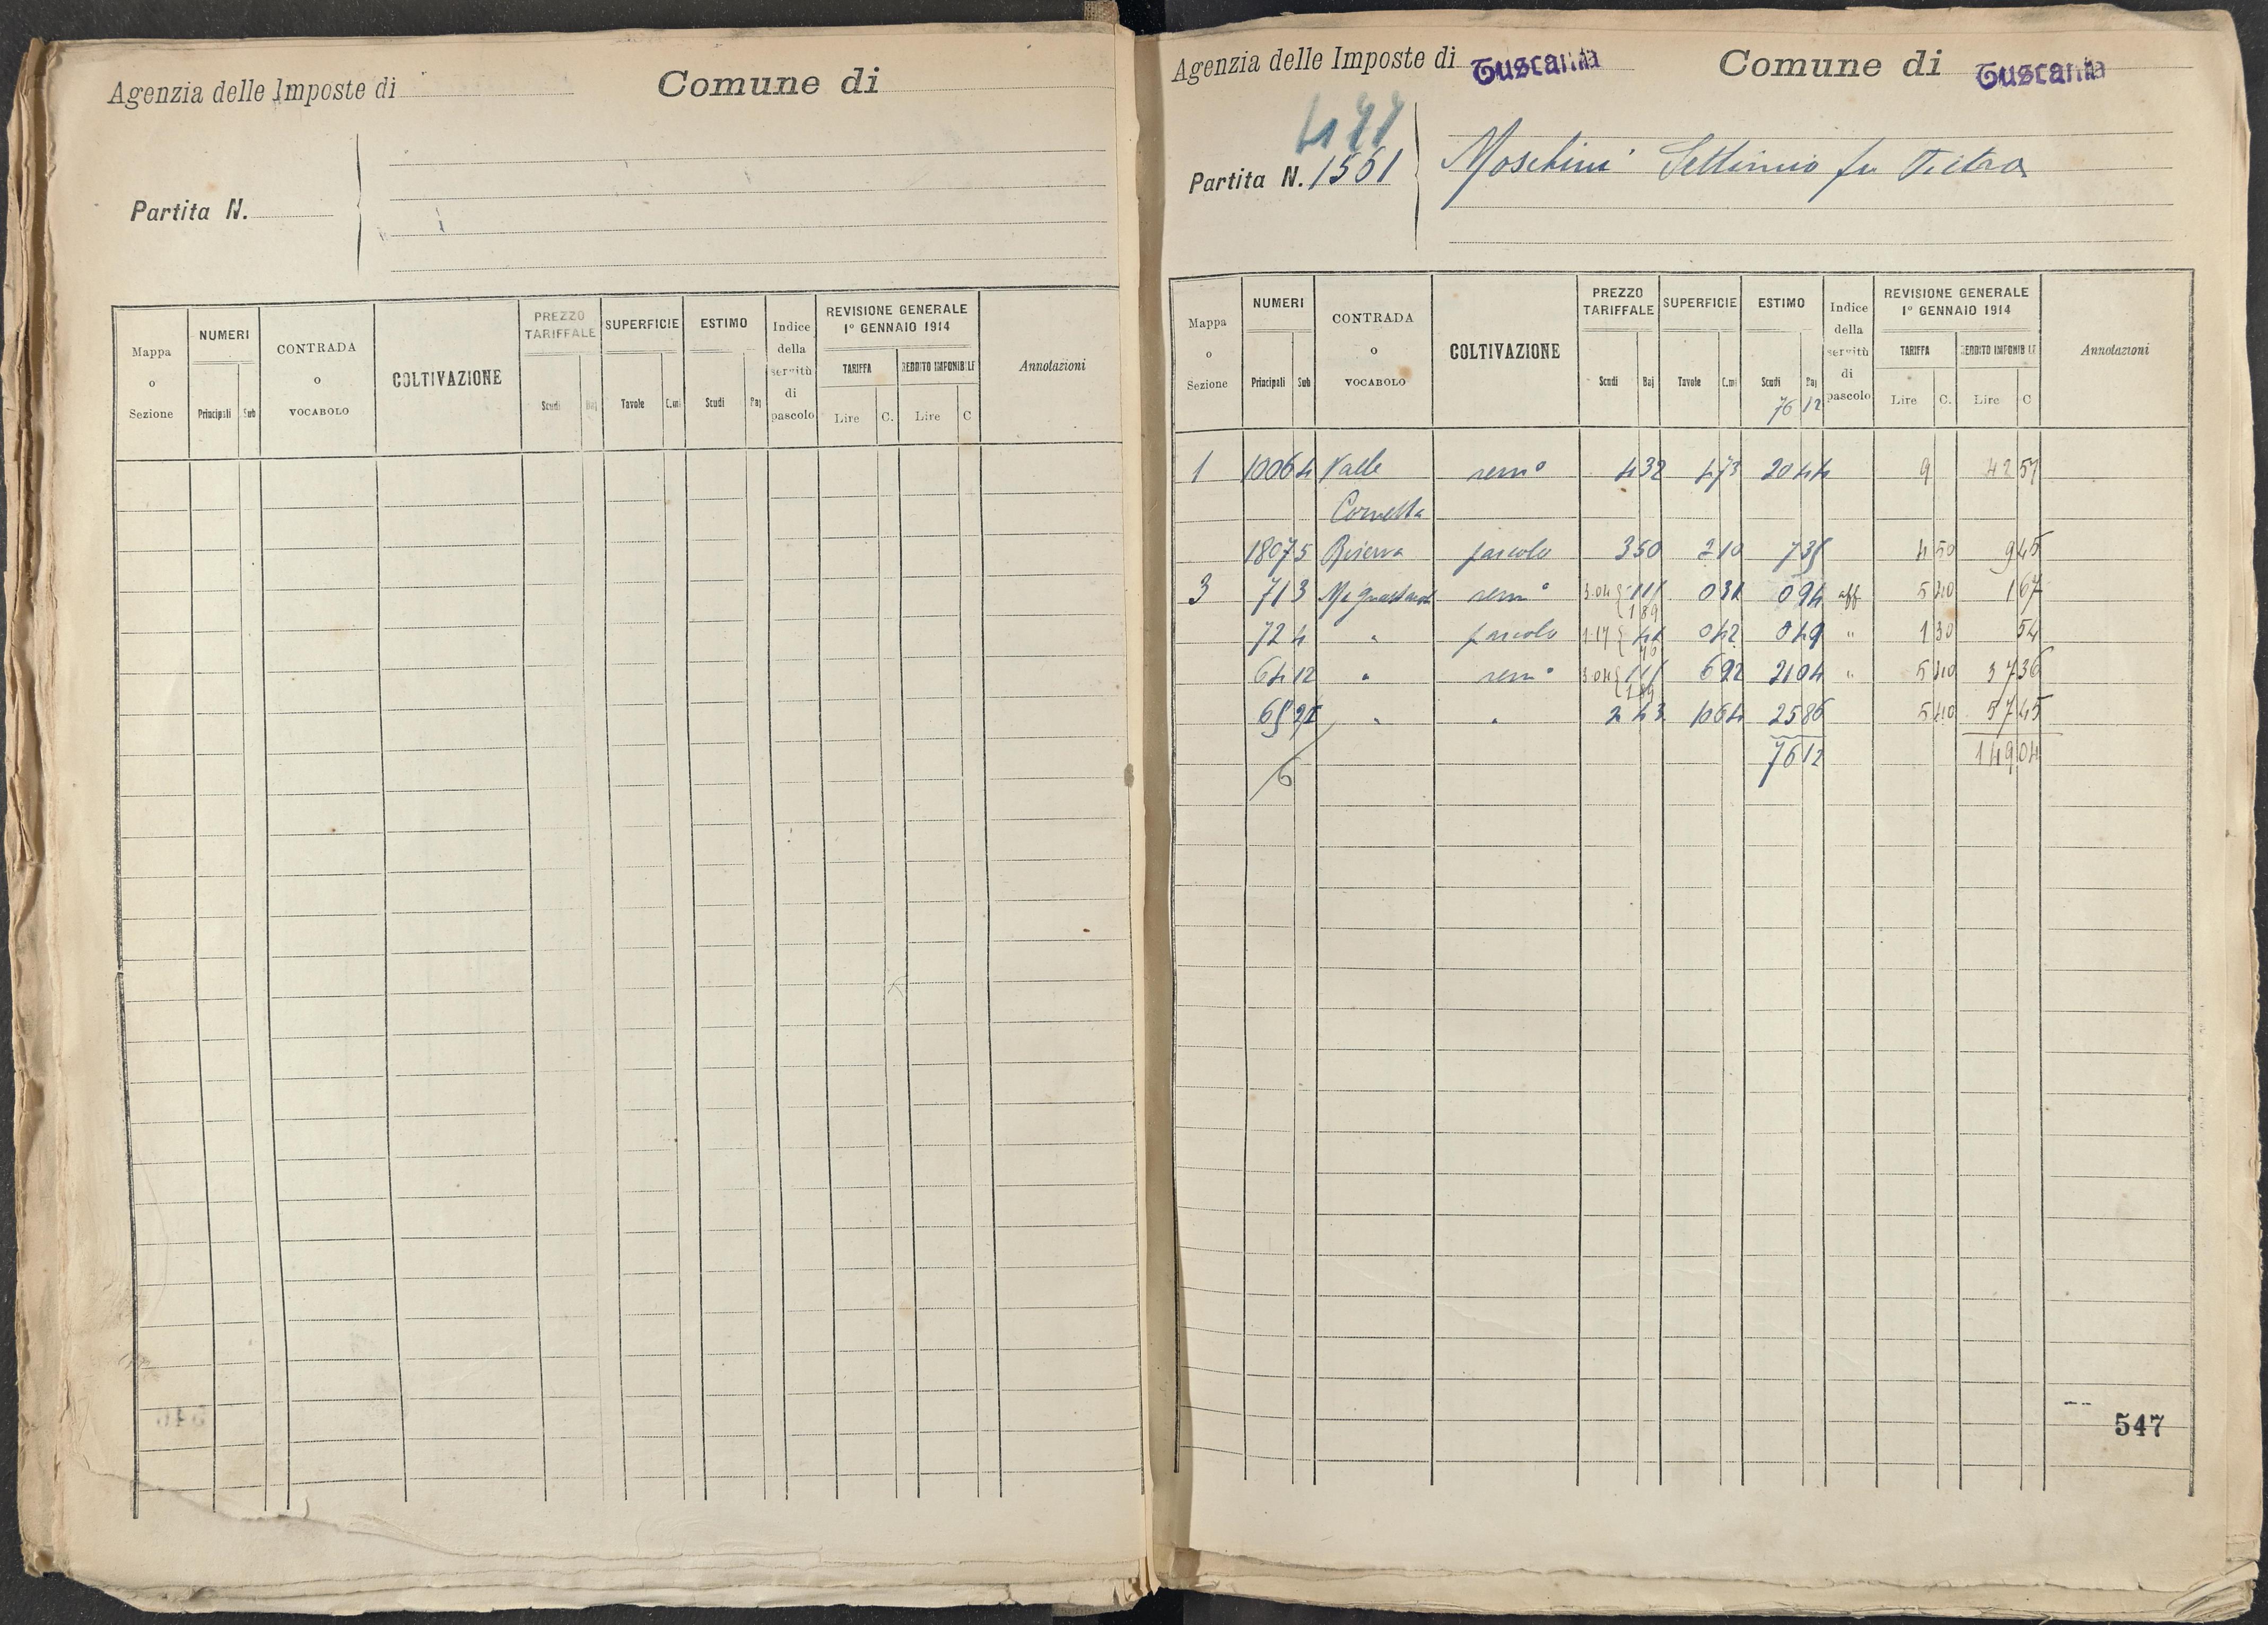 Agenzia delle Imposte di
Comune di
Partita N.
Mappa o Sezione
NUMERI
Principali Sub
CONTRADA o VOCABOLO
COLTIVAZIONE
PREZZO TARIFFALE
Scudi Baj
SUPERFICIE
Tavole C.mi
ESTIMO
Scudi Baj
Indice della servitù di pascolo
REVISIONE GENERALE
1° GENNAIO 1914
TARIFFA
REDDITO IMPONIBILE
Lire C. Lire C
Annotazioni
Agenzia delle Imposte di Tuscania
Comune di Tuscania
Partita N. 1561
Moschini Settimio fu Pietro
Mappa o Sezione
NUMERI
Principali Sub
CONTRADA o VOCABOLO
COLTIVAZIONE
PREZZO TARIFFALE
Scudi Baj
SUPERFICIE
Tavole C.mi
ESTIMO
Scudi Baj
76 12
Indice della servitù di pascolo
REVISIONE GENERALE
1° GENNAIO 1914
TARIFFA
REDDITO IMPONIBILE
Lire C. Lire C
Annotazioni
1 1006 4 Valle semo 4 32 4 73 20 44 9 42 57
Cornetta
1807 5 Riserva pascolo 3 50 2 10 7 35 4 50 9 45
3 71 3 semo 3.04 1 11 0 31 0 94 aff 5 40 1 67
1 89
72 4 " pascolo 1.17 0 42 0 49 " 1 30 54
64 12 " semo 3.04 1 11 6 92 21 04 " 5 40 37 36
1 89
65 " " 2 43 10 64 25 86 5 40 57 45
6 76 12 149 04
547